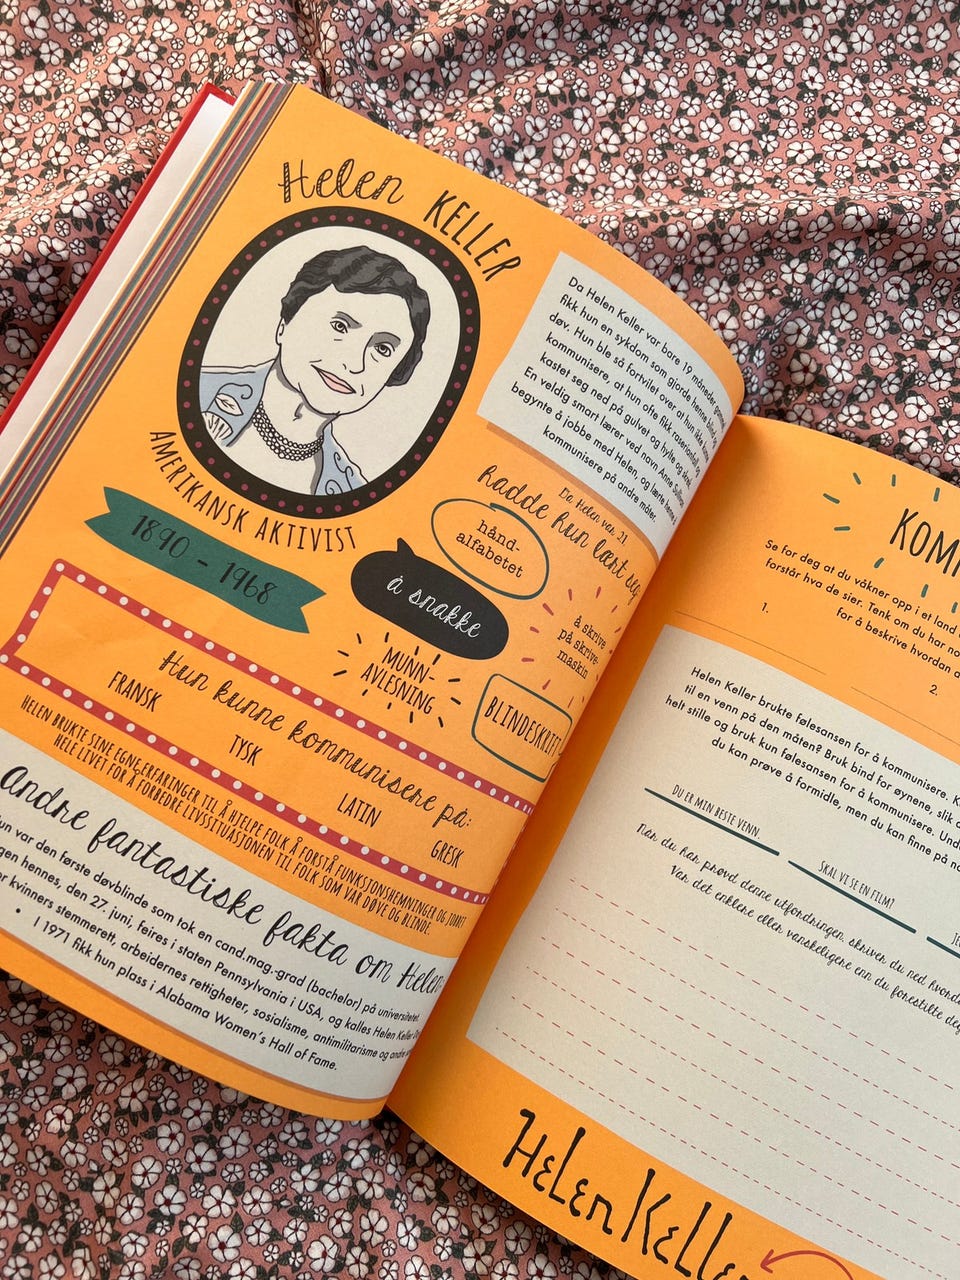 Helen KELLER
AMERIKANSK AKTIVIST
1890 - 1968
Da Helen Keller var bare 19 måneder gammel
fikk hun en sykdom som gjorde henne blind og
døv. Hun ble så fortvilet over at hun ikke kunne
kommunisere, at hun ofte fikk raserianfall og
kastet seg ned på gulvet og hylte og skrek.
En veldig smart lærer ved navn Anne Sullivan
begynte å jobbe med Helen, og lærte henne å
kommunisere på andre måter.
Da Helen var 21
hadde hun lært seg:
hånd-
alfabetet
å snakke
å skrive
på skrive-
maskin
MUNN-
AVLESNING
BLINDESKRIFT
Hun kunne kommunisere på:
FRANSK
TYSK
LATIN
GRESK
HELEN BRUKTE SINE EGNE ERFARINGER TIL Å HJELPE FOLK Å FORSTÅ FUNKSJONSHEMNINGER OG JOBBET
HELE LIVET FOR Å FORBEDRE LIVSSITUASJONEN TIL FOLK SOM VAR DØVE OG BLINDE.
Andre fantastiske fakta om Helen
Hun var den første døvblinde som tok en cand.mag.-grad (bachelor) på universitetet.
gen hennes, den 27. juni, feires i staten Pennsylvania i USA, og kalles Helen Keller
kvinners stemmerett, arbeidernes rettigheter, sosialisme, antimilitarisme og andre
• I 1971 fikk hun plass i Alabama Women's Hall of Fame.
KOM
Se for deg at du våkner opp i et land
forstår hva de sier. Tenk om du har no
for å beskrive hvordan
1.
2.
Helen Keller brukte følesansen for å kommunisere. K
til en venn på den måten? Bruk bind for øynene, slik
helt stille og bruk kun følesansen for å kommunisere. Und
du kan prøve å formidle, men du kan finne på no
DU ER MIN BESTE VENN.
SKAL VI SE EN FILM?
Når du har prøvd denne utfordringen, skriver du ned hvorda
Var det enklere eller vanskeligere enn du forestilte deg
Helen Keller